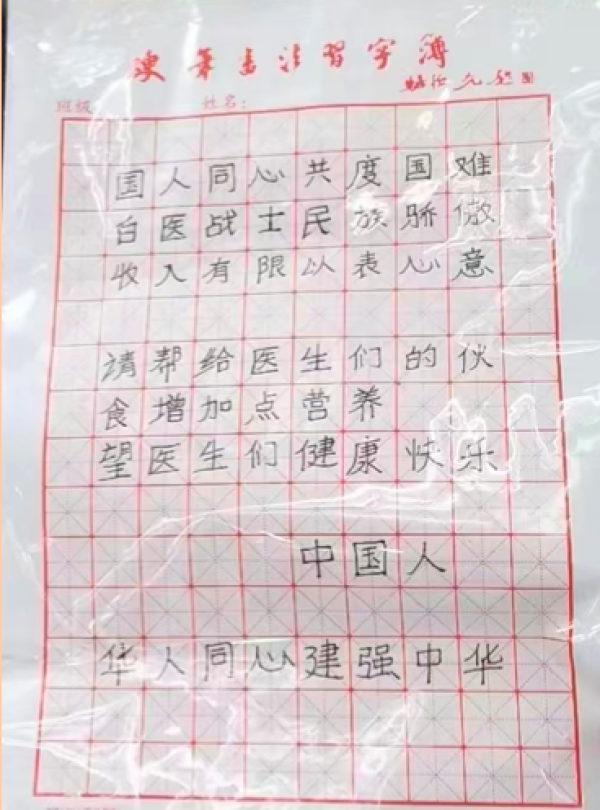 硬笔书法习字簿
班级
姓名:
国人同心共度国难
白医战士民族骄傲
收入有限以表心意
请帮给医生们的伙
食增加点营养
望医生们健康快乐
中国人
华人同心建强中华